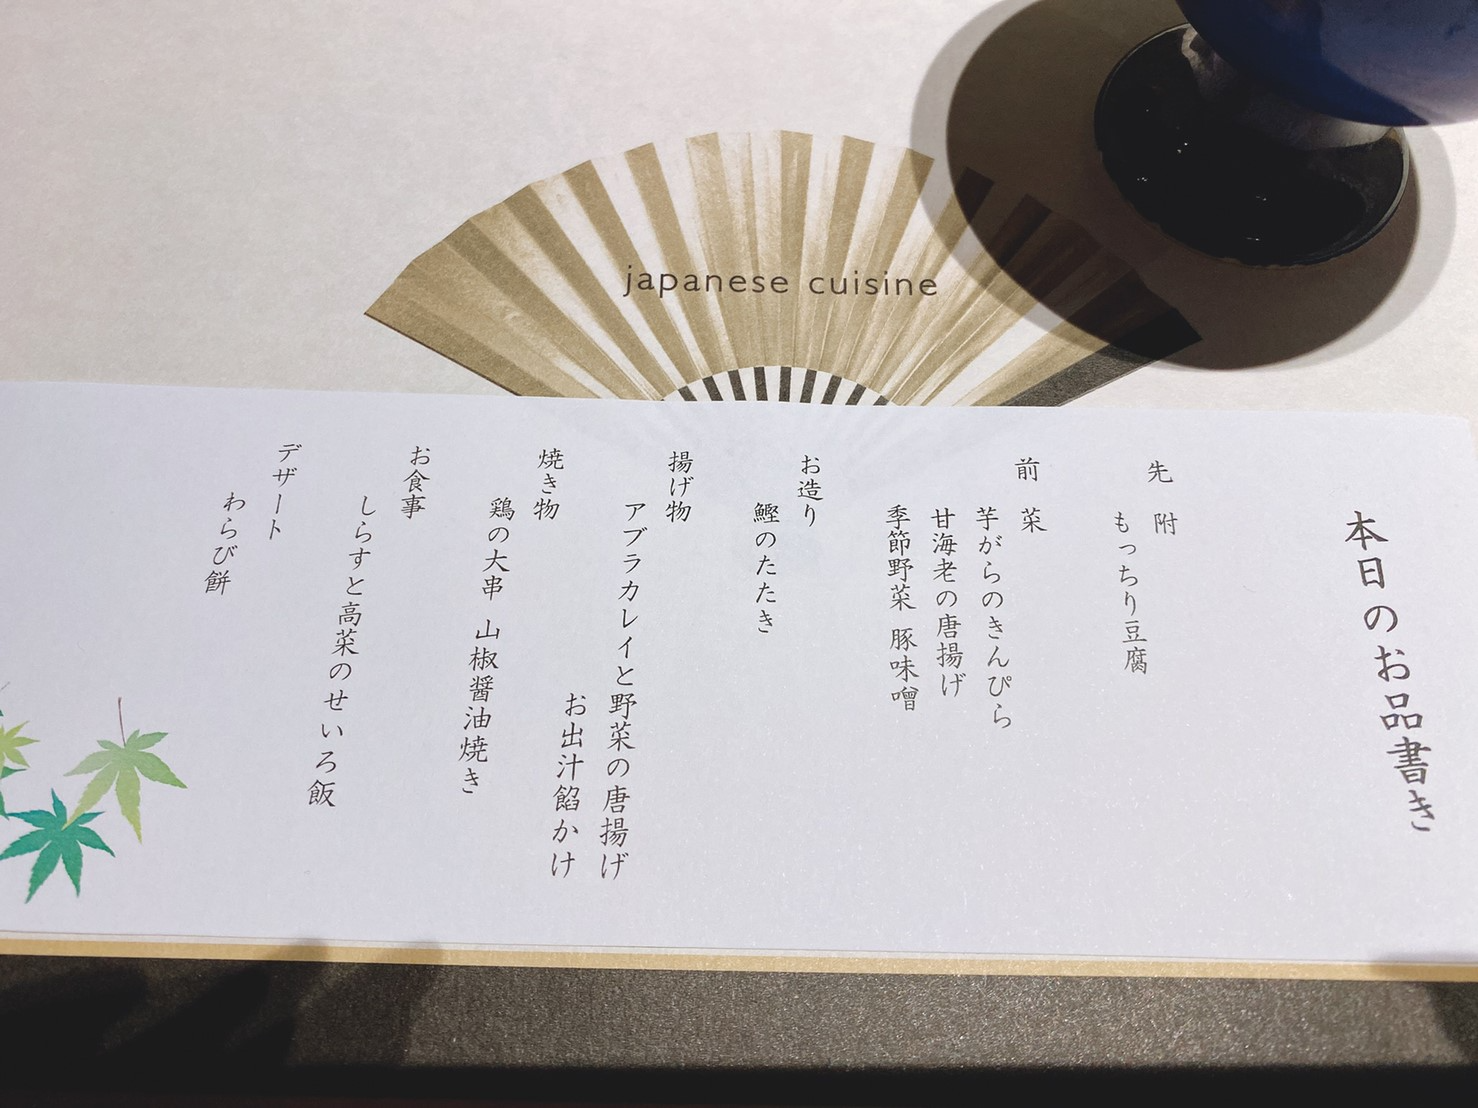 japanese cuisine
本日のお品書き
先附
もっちり豆腐
前菜
芋がらのきんぴら
甘海老の唐揚げ
季節野菜 豚味噌
お造り
鰹のたたき
揚げ物
アブラカレイと野菜の唐揚げ
お出汁餡かけ
焼き物
鶏の大串 山椒醤油焼き
お食事
しらすと高菜のせいろ飯
デザート
わらび餅